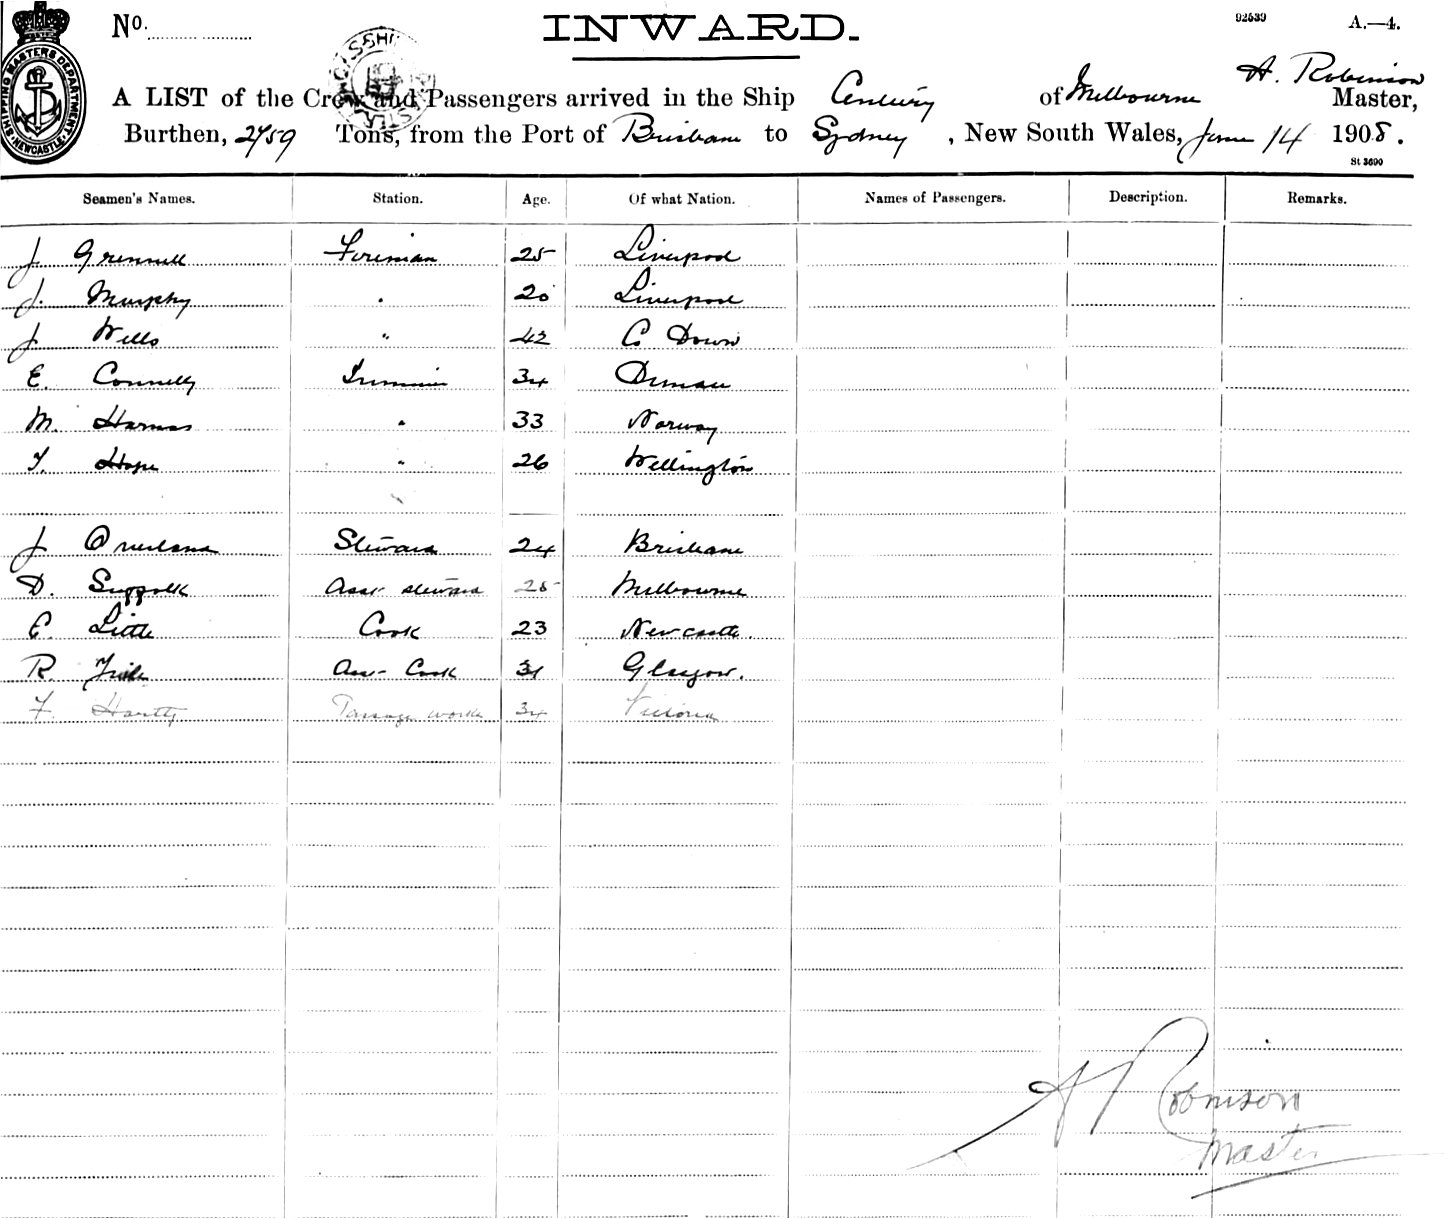 No. INWARD. 92539 A.—4.
A LIST of the Crew and Passengers arrived in the Ship Century of Melbourne A. Robinson Master,
Burthen, 2759 Tons, from the Port of Brisbane to Sydney, New South Wales, June 14 1908.
St 3690
SHIPPING MASTERS DEPARTMENT NEWCASTLE
Seamen's Names. Station. Age. Of what Nation. Names of Passengers. Description. Remarks.
J Fireman 25 Liverpool
J. Murphy " 20 Liverpool
J Wells " 42 Co Down
E. Connelly Trimmer 34
M. " 33 Norway
T. Hope " 26 Wellington
J Steward 24 Brisbane
D. Suffolk Asst steward 25 Melbourne
E. Little Cook 23 Newcastle.
R. Asst Cook 31 Glasgow.
F. Passage work 34 Victoria
A Robinson
Master